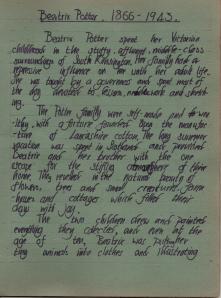 Beatrix Potter. 1866-1943.
Beatrix Potter spent her Victorian
childhood in the stuffy affluent, middle-class
surroundings of South Kensington. Her family had a
opressive influence on her until her adult life.
She was taught by a governess and spent most of
the day devoted to lesson, needlework and sketch
ing.
The Potter family were self-made and to
-thy, with a fortune founded upon the manufac
-ture of Lancashire cotton. The long summer
vacation was spent in Scotland and provided
Beatrix and her brother with the one
escape for the stifling of their
home. They revelled in the natural beauty of
flowers, trees and small creatures, farm
houses and cottages which filled their
days with joy.
The two children drew and painted
everything they collected, and even at the
age of ten, Beatrix was putting
ting animals into clothes and illustrating